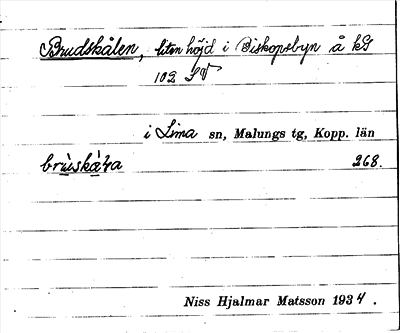 Brudskålen, liten höjd i Biskopsbyn å kG
102 SV
i Lima sn, Malungs tg, Kopp. län
268.
Niss Hjalmar Matsson 1934.